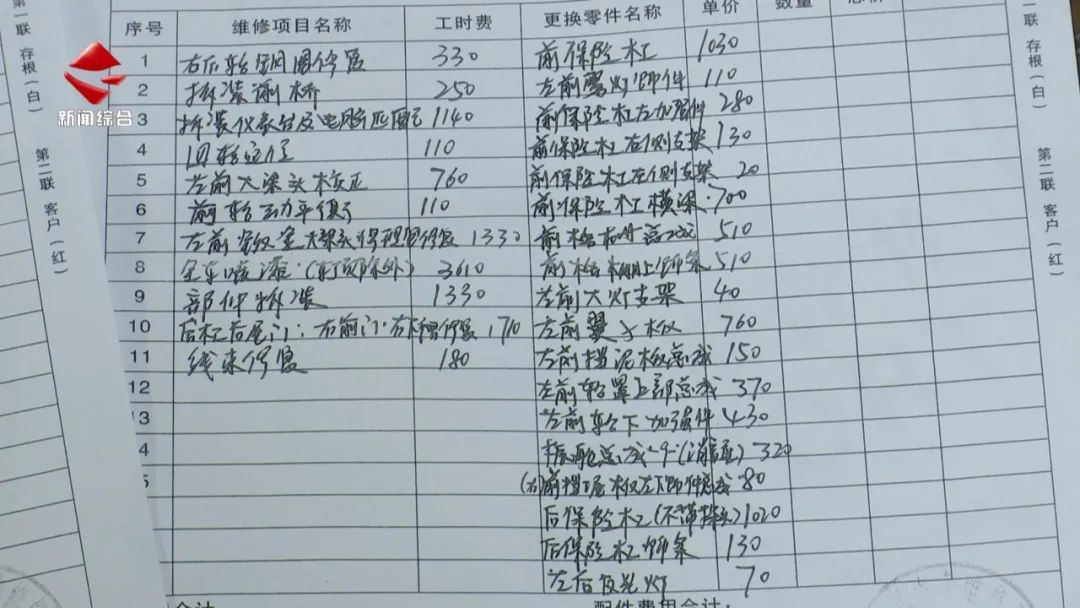 序号 维修项目名称 工时费 更换零件名称 单价 数量
1 右后轮钢圈修复 330 前保险杠 1030
2 拆装前桥 250 左前雾灯饰件 110
3 拆装仪表台及电脑匹配 1140 前保险杠左加强件 280
4 四轮定位 110 前保险杠右侧支架 130
5 左前大梁头校正 760 前保险杠左侧支架 20
6 前轮动平衡 110 前保险杠横梁 700
7 左前 大梁头修理 修复 1330 前格栅总成 510
8 全车喷漆(车顶除外) 3610 前格栅上饰条 510
9 部件拆装 1330 左前大灯支架 40
10 后杠后尾门:右前门·右 修复 1710 左前翼子板 760
11 线束修复 180 左前挡泥板总成 150
12 左前轮罩上部总成 370
13 左前轮下加强件 430
4 总成 320
5 (右)前挡泥板左下饰件总成 80
后保险杠 1020
后保险杠饰条 130
左后反光灯 70
合计
配件费用合计:
新闻综合
第一联 存根(白)
第二联 客户(红)
第一联 存根(白)
第二联 客户(红)